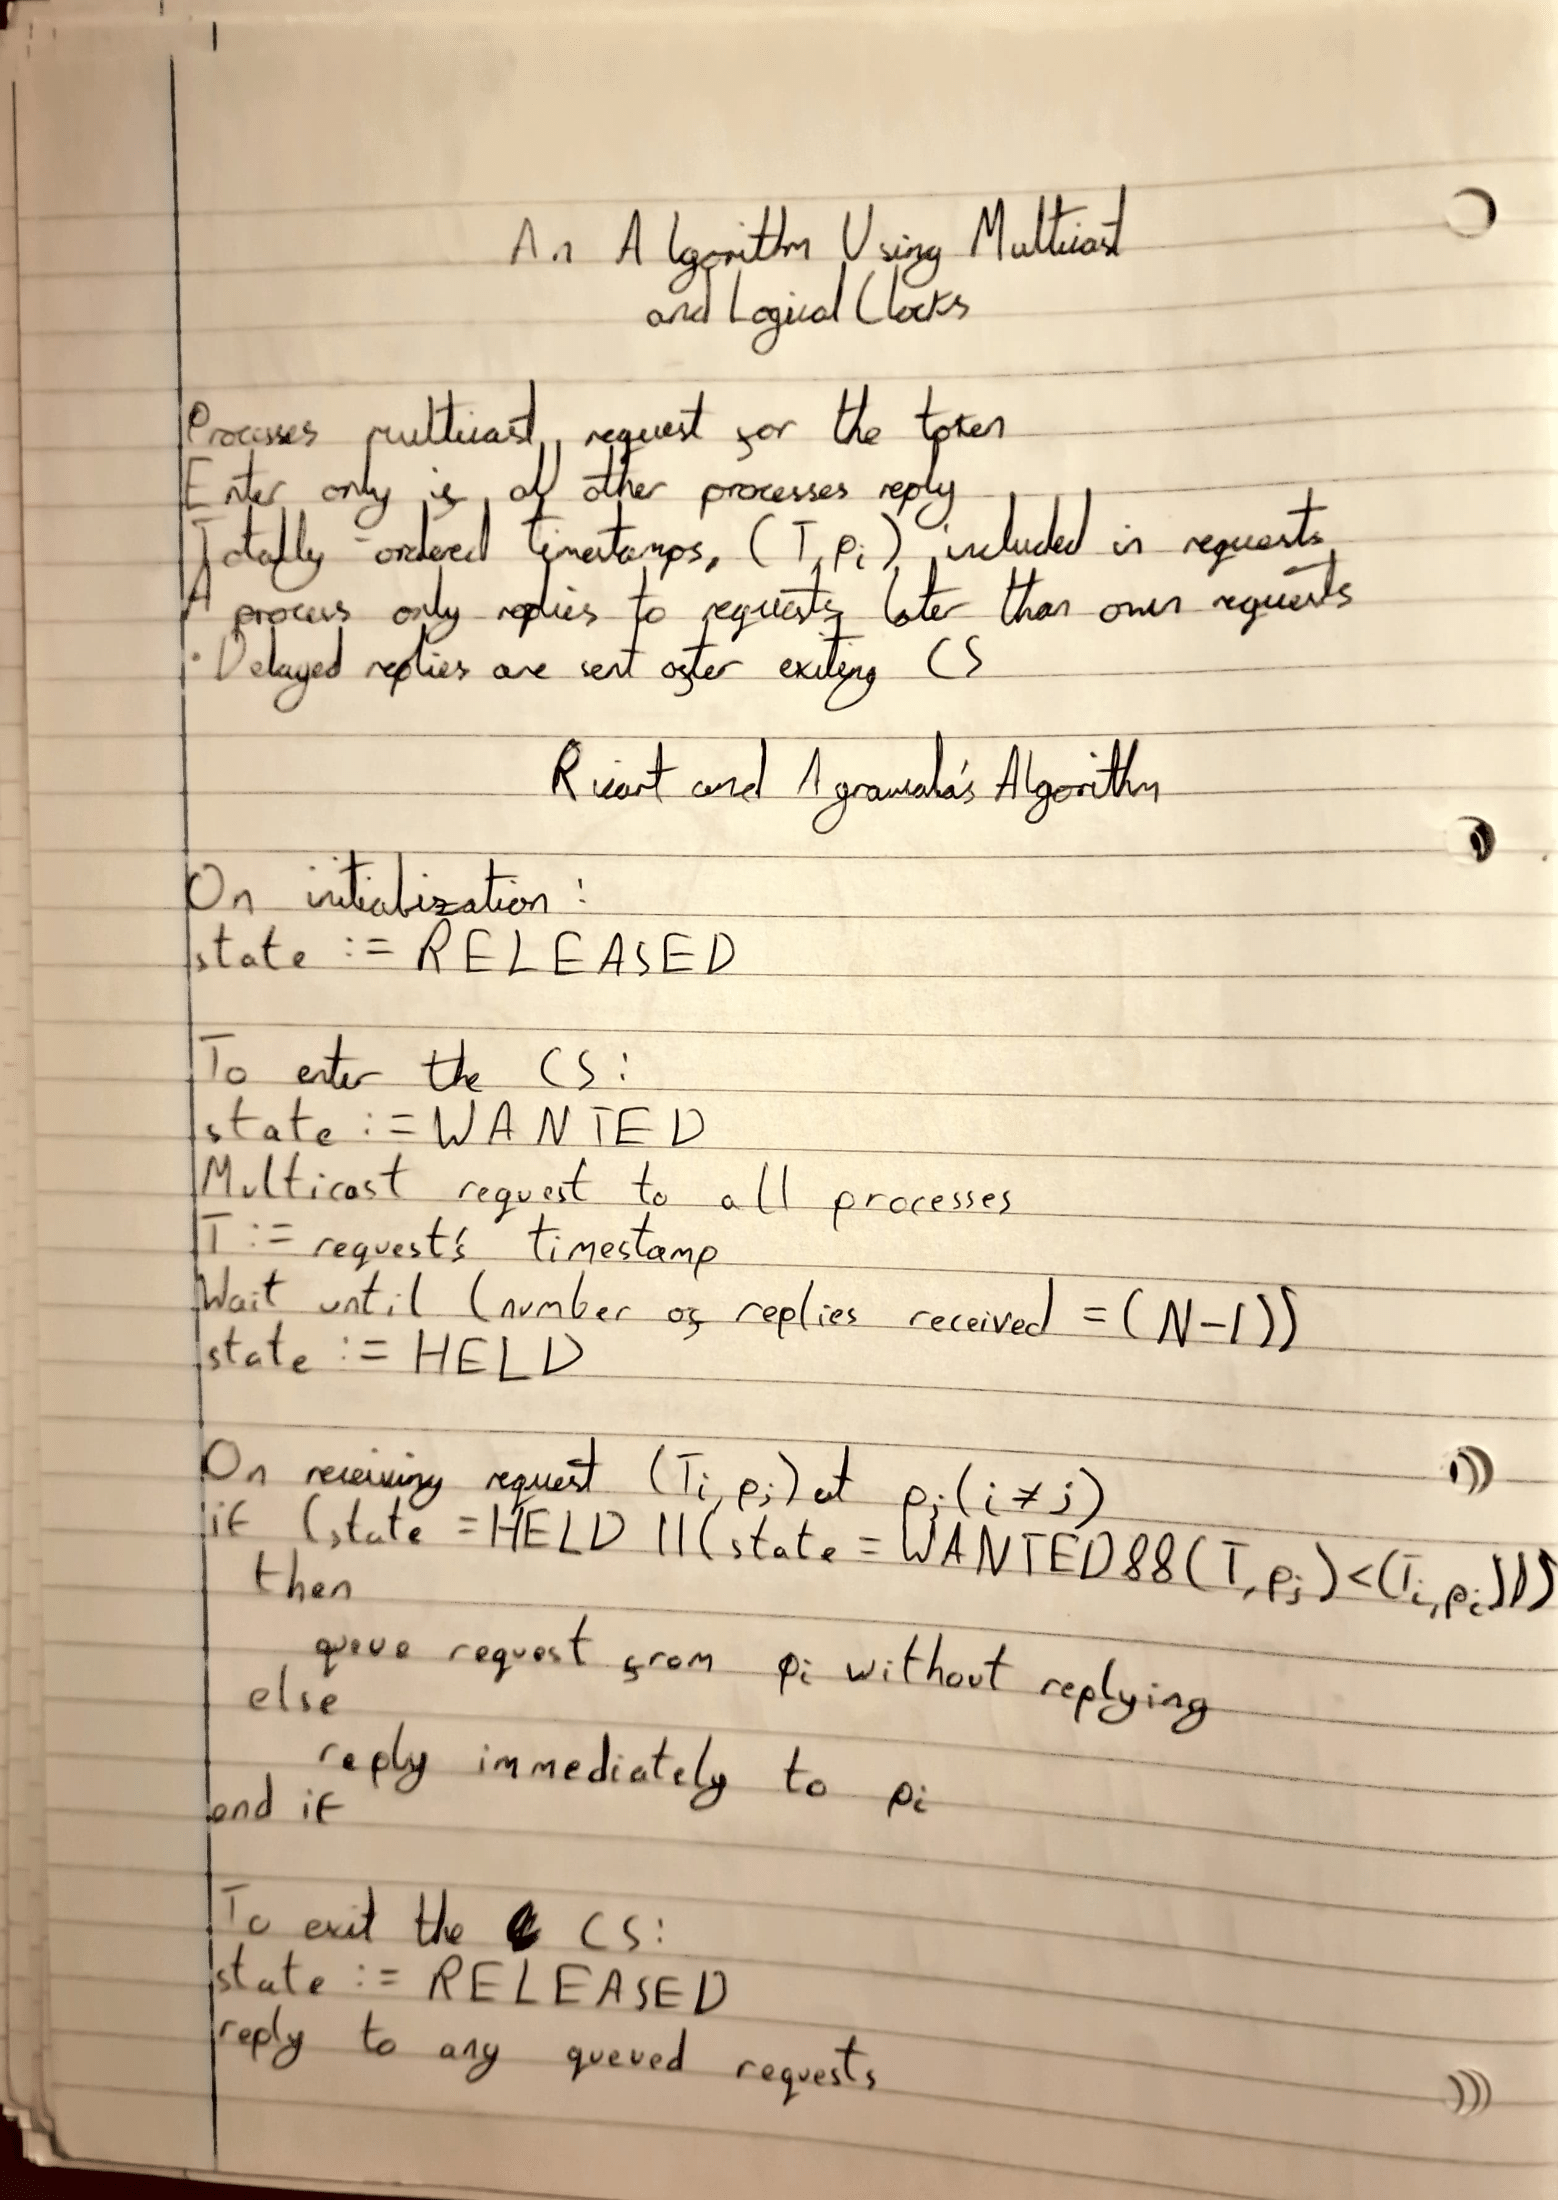 An Algorithm Using Multicast
and Logical Clocks
Processes multicast request for the token
Enter only if all other processes reply
Totally-ordered timestamps, (T, pi) included in requests
A process only replies to requests later than own requests
· Delayed replies are sent after exiting CS
Ricart and Agrawala's Algorithm
On initialization:
state := RELEASED
To enter the CS:
state := WANTED
Multicast request to all processes
T := request's timestamp
Wait until (number of replies received = (N-1))
state := HELD
On receiving request (Ti, pi) at pj (i ≠ j)
if (state = HELD || (state = WANTED && (T, pj) < (Ti, pi)))
then
queue request from pi without replying
else
reply immediately to pi
end if
To exit the CS:
state := RELEASED
reply to any queued requests